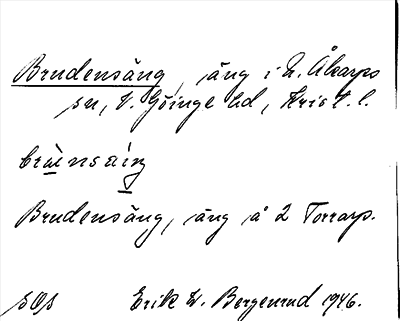 Brudensäng, äng i N. Åkarps
sn, V. Göinge hd, Krist. l.
Brudensäng, äng å 2 Torrarp.
SOS Erik W. Bergenrud 1946.